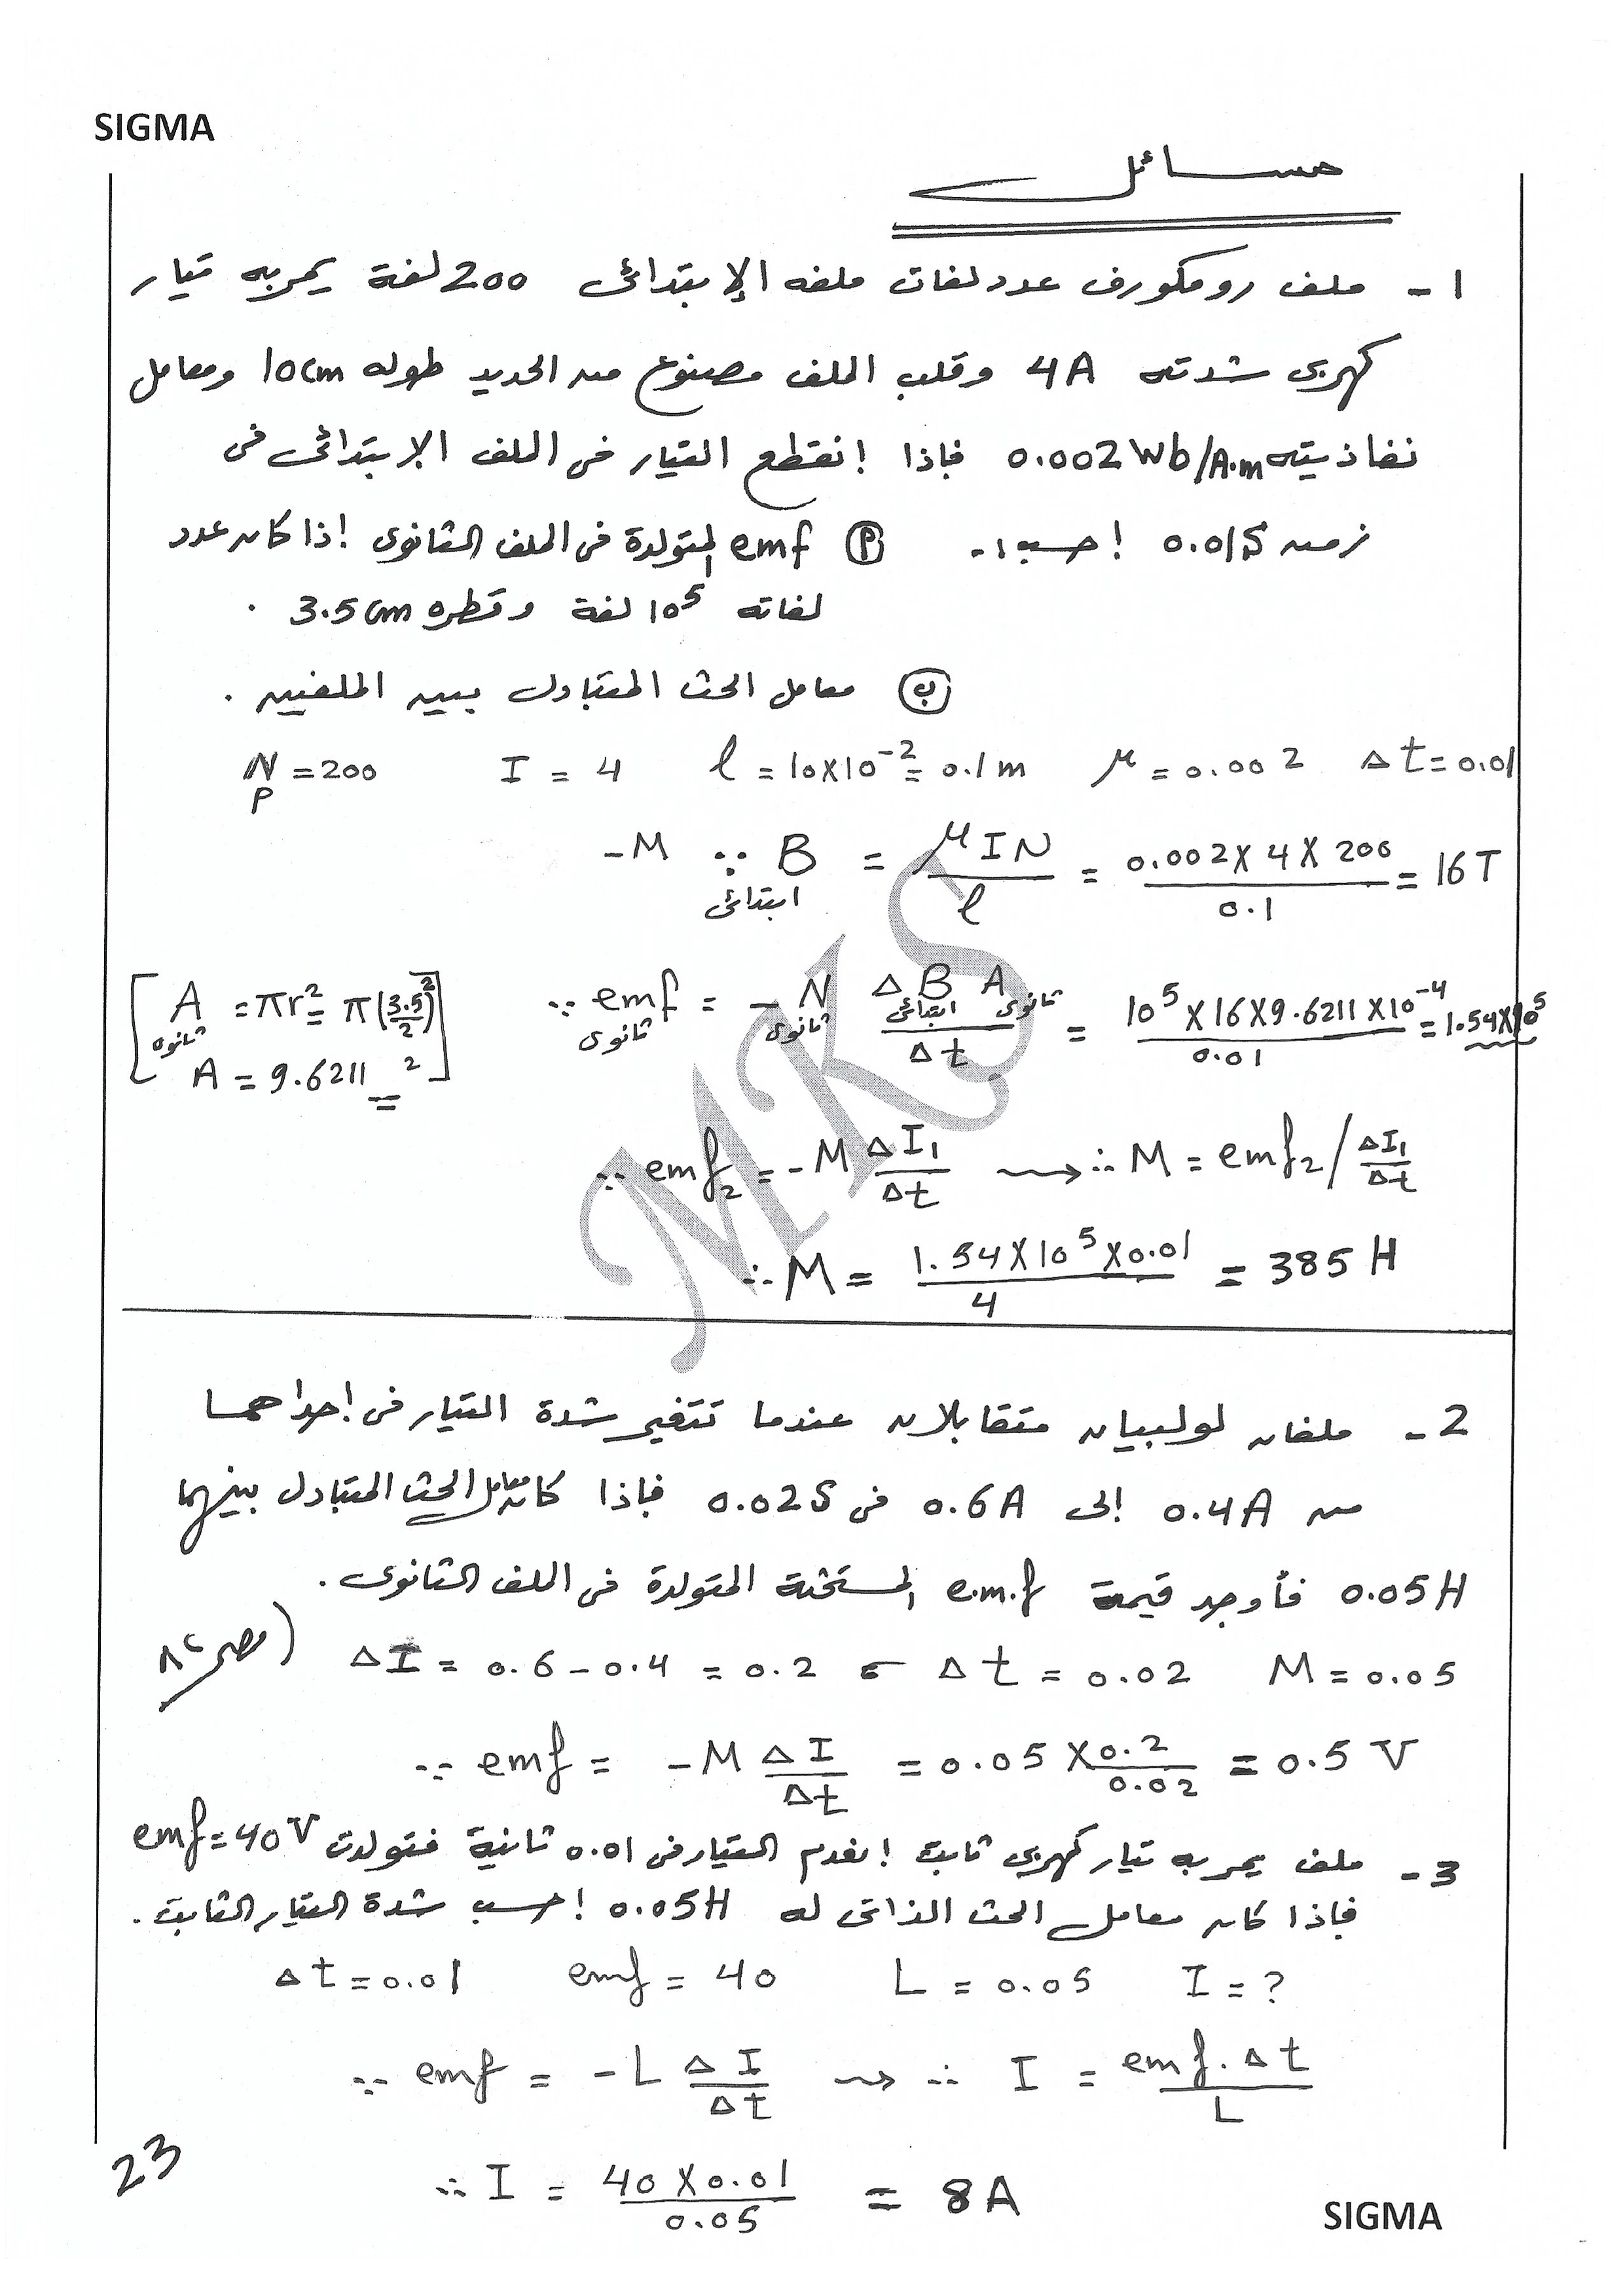 SIGMA
مسائل
1- ملف رومكورف عدد لفات ملفه الإبتدائى 200 لفة يمر به تيار
كهربى شدته 4A وقلب الملف مصنوع من الحديد طوله 10cm ومعامل
نفاذيته 0.002 Wb/A.m فإذا إنقطع التيار فى الملف الإبتدائى فى
زمن 0.01S إحسب :- (أ) emf المتولدة فى الملف الثانوى إذا كان عدد
لفاته 10⁵ لفة وقطره 3.5cm .
(ب) معامل الحث المتبادل بين الملفين .
N_P = 200 I = 4 ℓ = 10×10⁻² = 0.1m μ = 0.002 Δt = 0.01
-M ∵ B ابتدائى = μIN / ℓ = 0.002 × 4 × 200 / 0.1 = 16T
[A ثانوى = πr² = π(3.5/2)² ∵ emf ثانوى = -N ثانوى ΔB ابتدائى A ثانوى / Δt = 10⁵ × 16 × 9.6211 × 10⁻⁴ / 0.01 = 1.54×10⁵
A = 9.6211 ²]
∵ emf₂ = -M ΔI₁/Δt ⟿ ∴ M = emf₂ / ΔI₁/Δt
∴ M = 1.54 × 10⁵ × 0.01 / 4 = 385 H
2- ملفان لولبيان متقابلان عندما تتغير شدة التيار فى إحداهما
من 0.4A إلى 0.6A فى 0.02S فإذا كان معامل الحث المتبادل بينهما
0.05H فأوجد قيمة e.m.f المستحثة المتولدة فى الملف الثانوى .
(مصر ٨٢
ΔI = 0.6 - 0.4 = 0.2 ، Δt = 0.02 M = 0.05
∵ emf = -M ΔI/Δt = 0.05 × 0.2/0.02 = 0.5 V
3- ملف يمر به تيار كهربى ثابت إنعدم التيار فى 0.01 ثانية فتولدت emf = 40V
فإذا كان معامل الحث الذاتى له 0.05H إحسب شدة التيار الثابت .
Δt = 0.01 emf = 40 L = 0.05 I = ?
∵ emf = -L ΔI/Δt ⟿ ∴ I = emf . Δt / L
∴ I = 40 × 0.01 / 0.05 = 8A
23
SIGMA
MKS